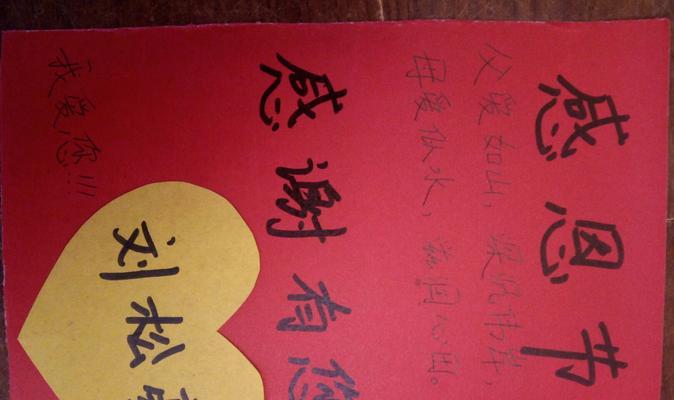 感恩节
父爱如山，深沉伟岸，
母爱似水，滋润心田。
感谢有您
我爱您!!!
刘松